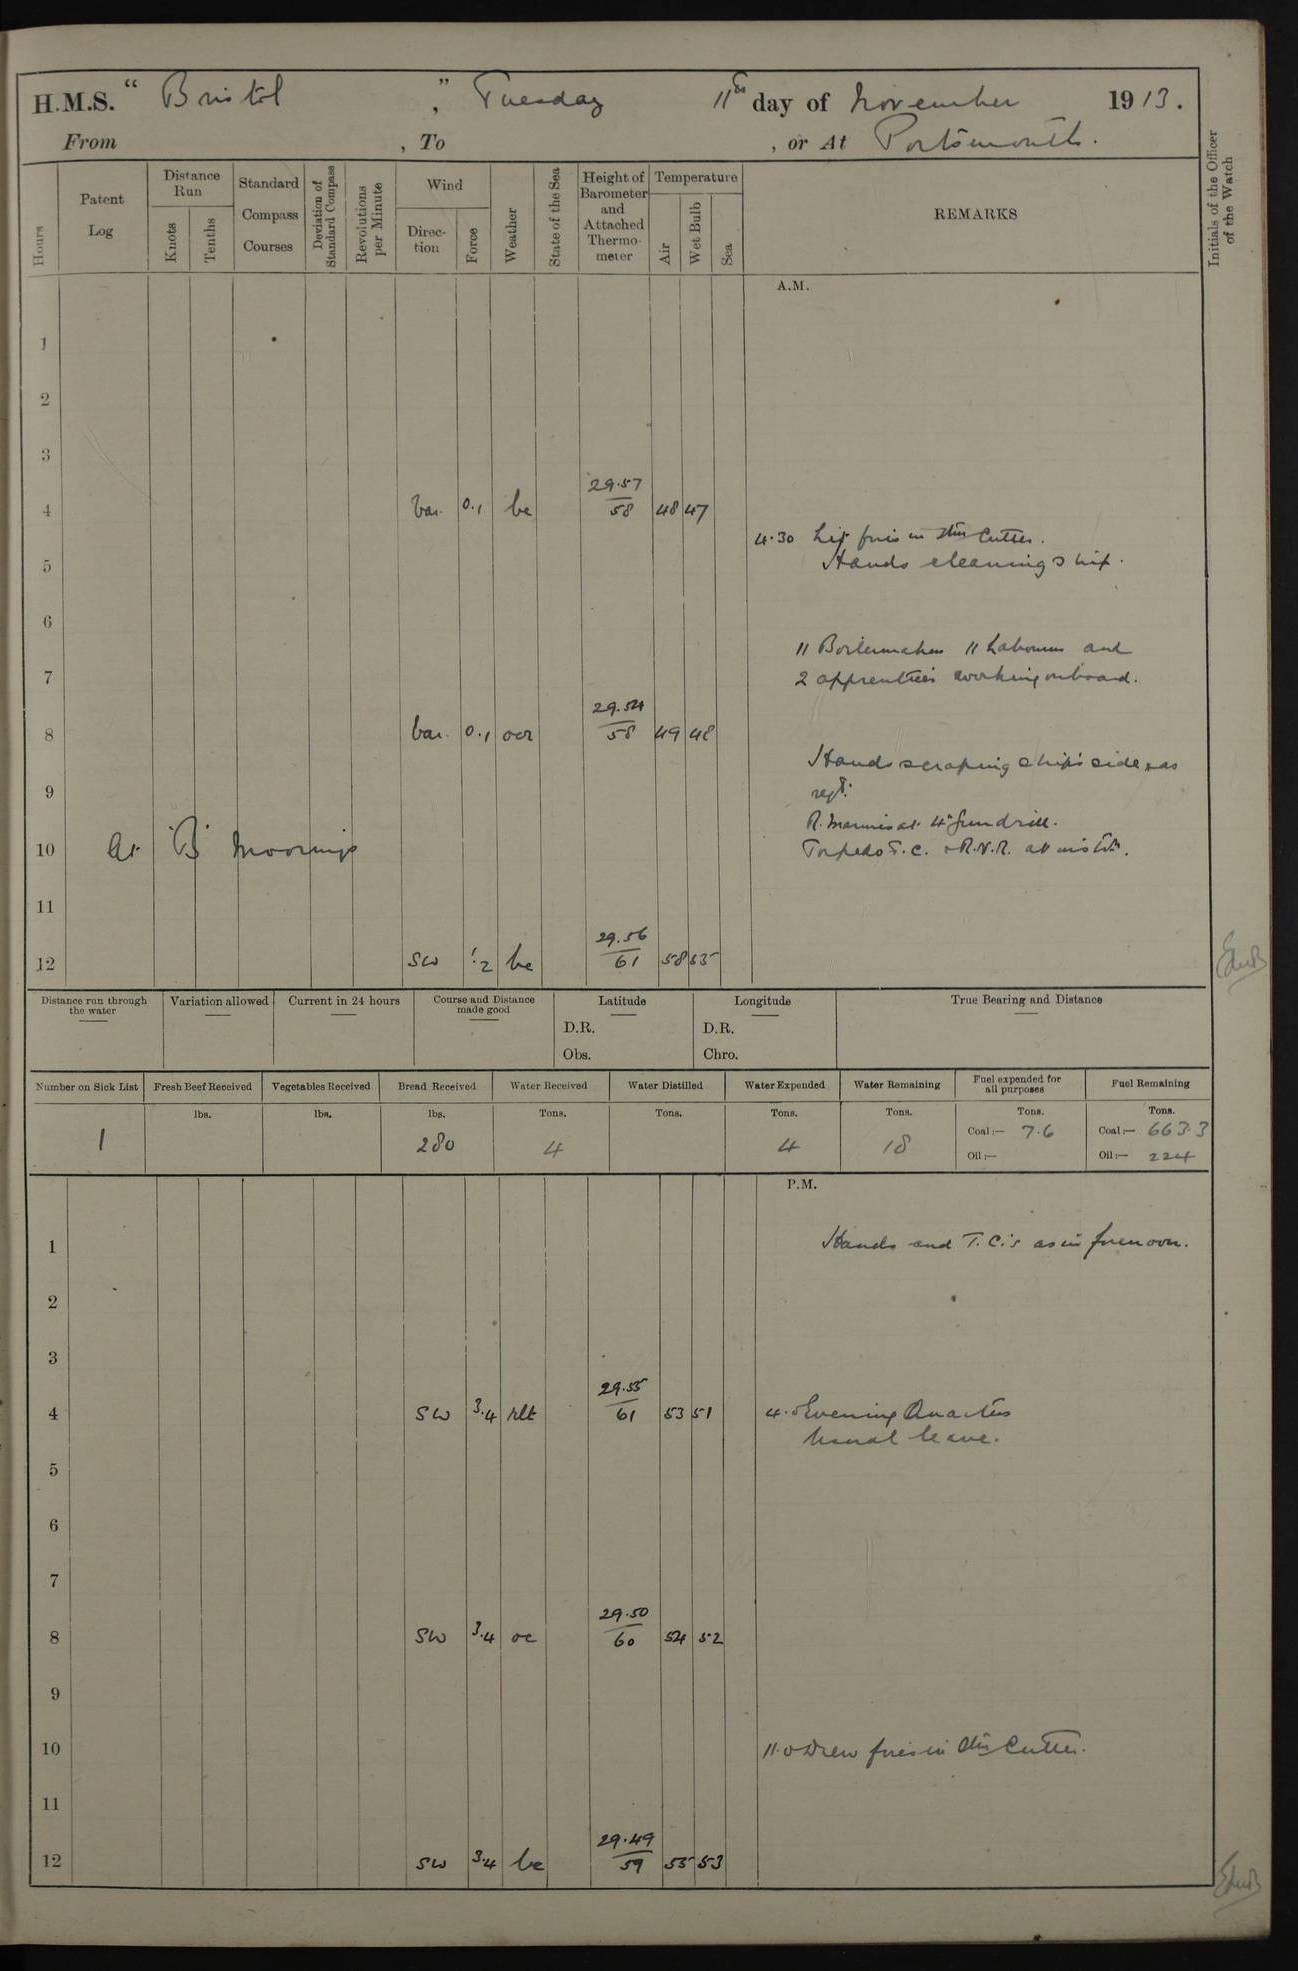 H.M.S. " Bristol ", Tuesday 11th day of November 1913.
From , To , or At Portsmouth.
Hours
Patent Log
Distance Run
Knots
Tenths
Standard Compass Courses
Deviation of Standard Compass
Revolutions per Minute
Wind
Direction
Force
Weather
State of the Sea
Height of Barometer and Attached Thermometer
Temperature
Air
Wet Bulb
Sea
REMARKS
Initials of the Officer of the Watch
A.M.
1
2
3
4 Var. 0.1 bc 29.57 58 48 47
4.30 Lit fires in Stm Cutter.
5 Hands cleaning ship.
6
11 Boilermakers 11 Labourers and
7 2 apprentices working onboard.
8 Var. 0.1 ocr 29.54 58 49 48
Hands scraping ship's side & as
9 reqd.
R. Marines at 4" Gun drill.
10 At 'B' Moorings Torpedo T.C. & R.N.R. at instn.
11
12 SW 1.2 bc 29.56 61 58 55
Distance run through the water
Variation allowed
Current in 24 hours
Course and Distance made good
Latitude
D.R.
Obs.
Longitude
D.R.
Chro.
True Bearing and Distance
Number on Sick List
Fresh Beef Received
Vegetables Received
Bread Received
Water Received
Water Distilled
Water Expended
Water Remaining
Fuel expended for all purposes
Fuel Remaining
lbs. lbs. lbs. Tons. Tons. Tons. Tons. Tons. Tons.
1 280 4 4 18 Coal:— 7.6 Coal:— 663.3
Oil:— Oil:— 224
P.M.
1 Hands and T.C.'s as in forenoon.
2
3
4 SW 3.4 rlt 29.55 61 53 51 4.0 Evening Quarters
Usual leave.
5
6
7
8 SW 3.4 oc 29.50 60 54 52
9
10 11.0 Drew fires in Stm Cutter.
11
12 SW 3.4 bc 29.49 59 55 53